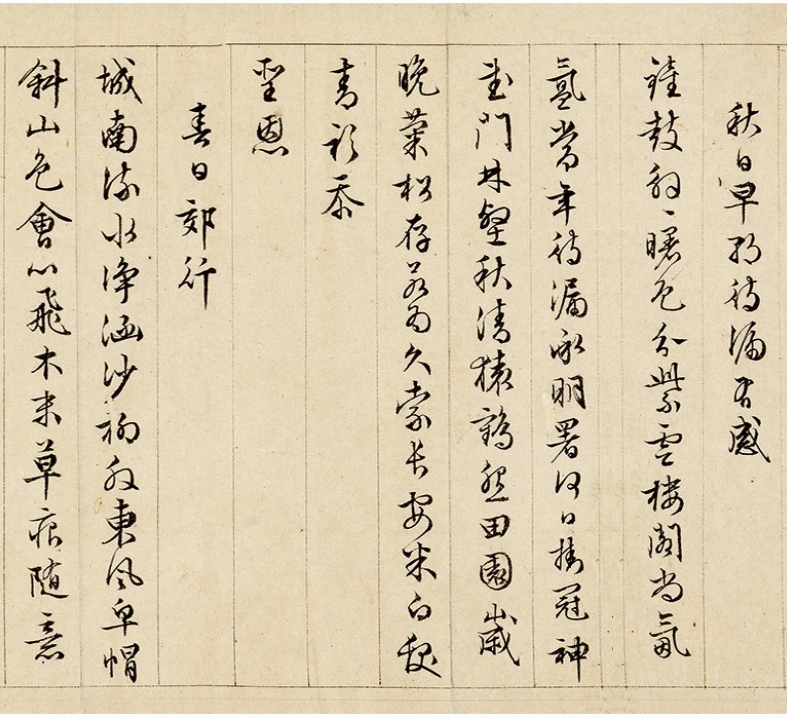 秋日早朝待漏有感
鐘鼓殷〻曙色分紫雲樓閣尚氤
氳當年待漏承明署何日掛冠神
武門林壑秋清猿鶴怨田園歲
晚菊松存若為久索長安米白髮
青衫忝
聖恩
春日郊行
城南流水淨涵沙柳外東風皁帽
斜山色會心飛木末草痕隨意